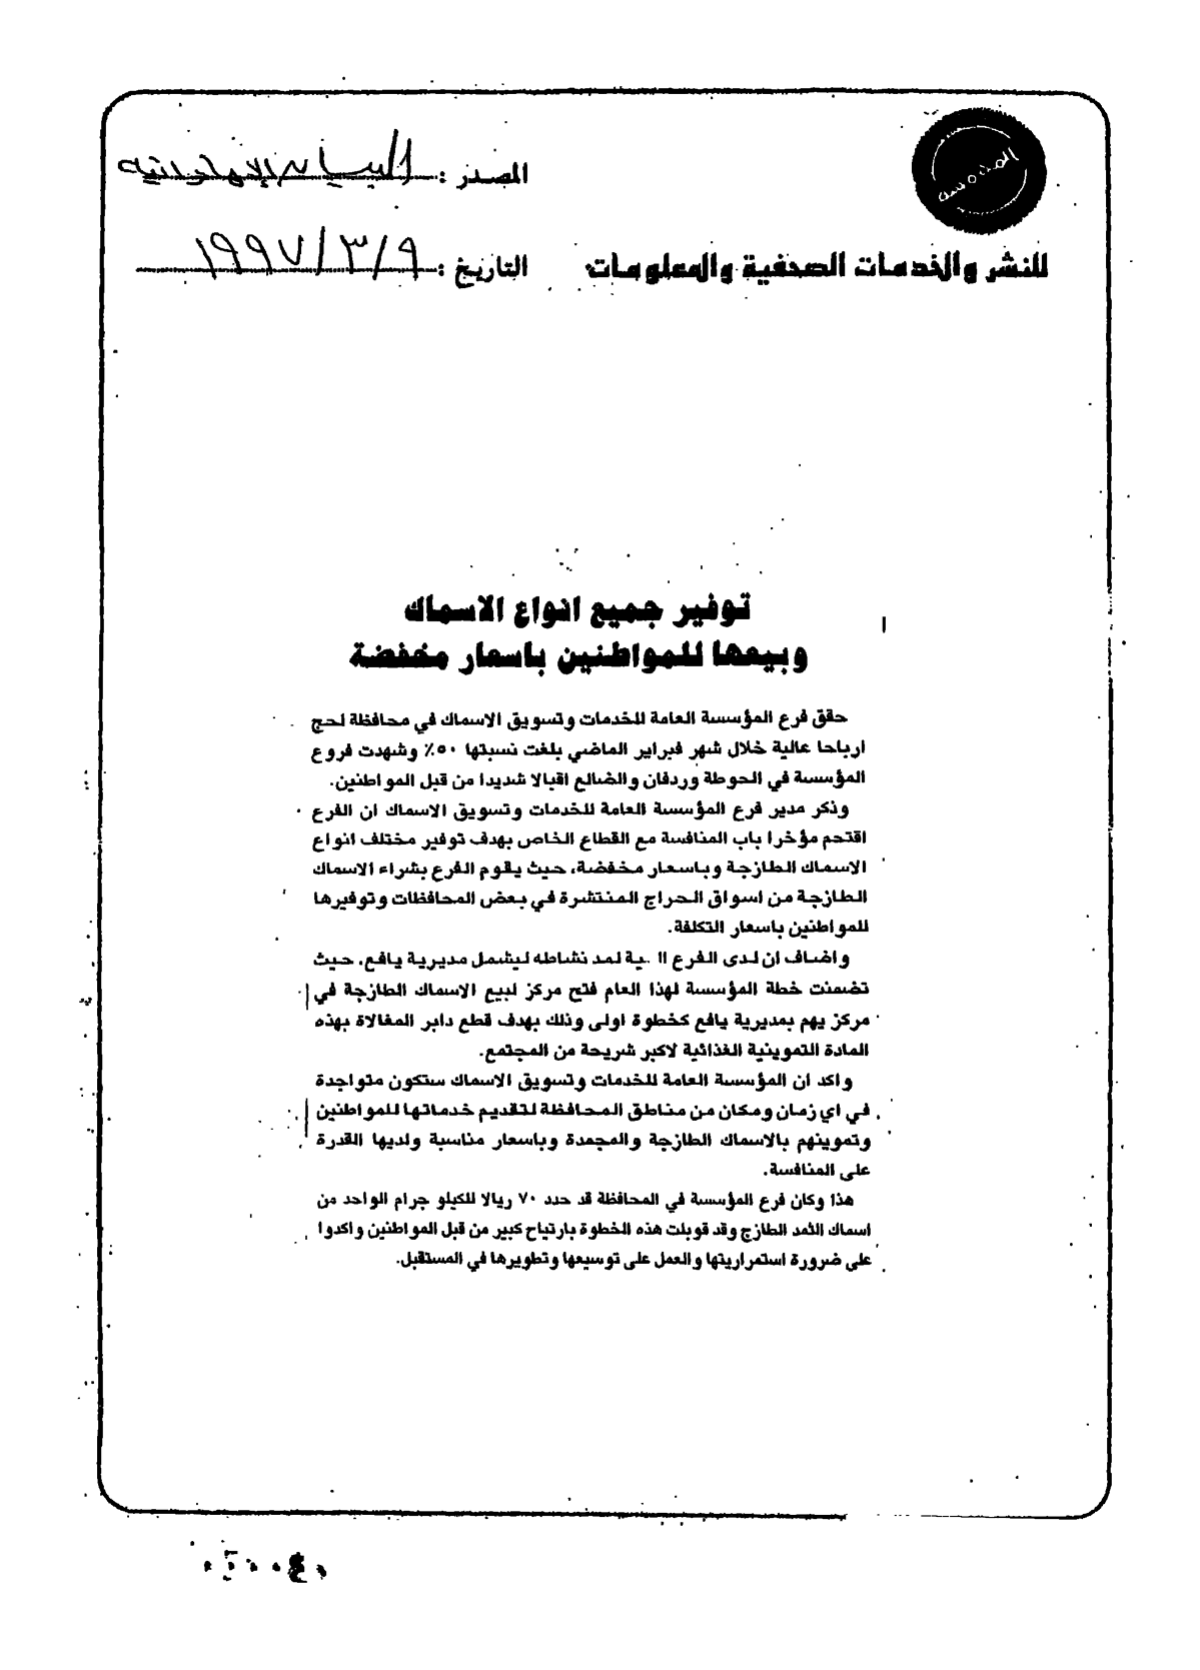 المصدر : البيان الإماراتية
للنشر والخدمات الصحفية والمعلومات
التاريخ : ١٩٩٧/٣/٩
توفير جميع انواع الاسماك
وبيعها للمواطنين باسعار مخفضة
حقق فرع المؤسسة العامة للخدمات وتسويق الاسماك في محافظة لحج
ارباحا عالية خلال شهر فبراير الماضي بلغت نسبتها ٥٠٪ وشهدت فروع
المؤسسة في الحوطة وردفان والضالع اقبالا شديدا من قبل المواطنين.
وذكر مدير فرع المؤسسة العامة للخدمات وتسويق الاسماك ان الفرع
اقتحم مؤخرا باب المنافسة مع القطاع الخاص بهدف توفير مختلف انواع
الاسماك الطازجة وباسعار مخفضة، حيث يقوم الفرع بشراء الاسماك
الطازجة من اسواق الحراج المنتشرة في بعض المحافظات وتوفيرها
للمواطنين باسعار التكلفة.
واضاف ان لدى الفرع لمد نشاطه ليشمل مديرية يافع، حيث
تضمنت خطة المؤسسة لهذا العام فتح مركز لبيع الاسماك الطازجة في
مركز يهم بمديرية يافع كخطوة اولى وذلك بهدف قطع دابر المغالاة بهذه
المادة التموينية الغذائية لاكبر شريحة من المجتمع.
واكد ان المؤسسة العامة للخدمات وتسويق الاسماك ستكون متواجدة
في اي زمان ومكان من مناطق المحافظة لتقديم خدماتها للمواطنين
وتموينهم بالاسماك الطازجة والمجمدة وباسعار مناسبة ولديها القدرة
على المنافسة.
هذا وكان فرع المؤسسة في المحافظة قد حدد ٧٠ ريالا للكيلو جرام الواحد من
اسماك الثمد الطازج وقد قوبلت هذه الخطوة بارتياح كبير من قبل المواطنين واكدوا
على ضرورة استمراريتها والعمل على توسيعها وتطويرها في المستقبل.